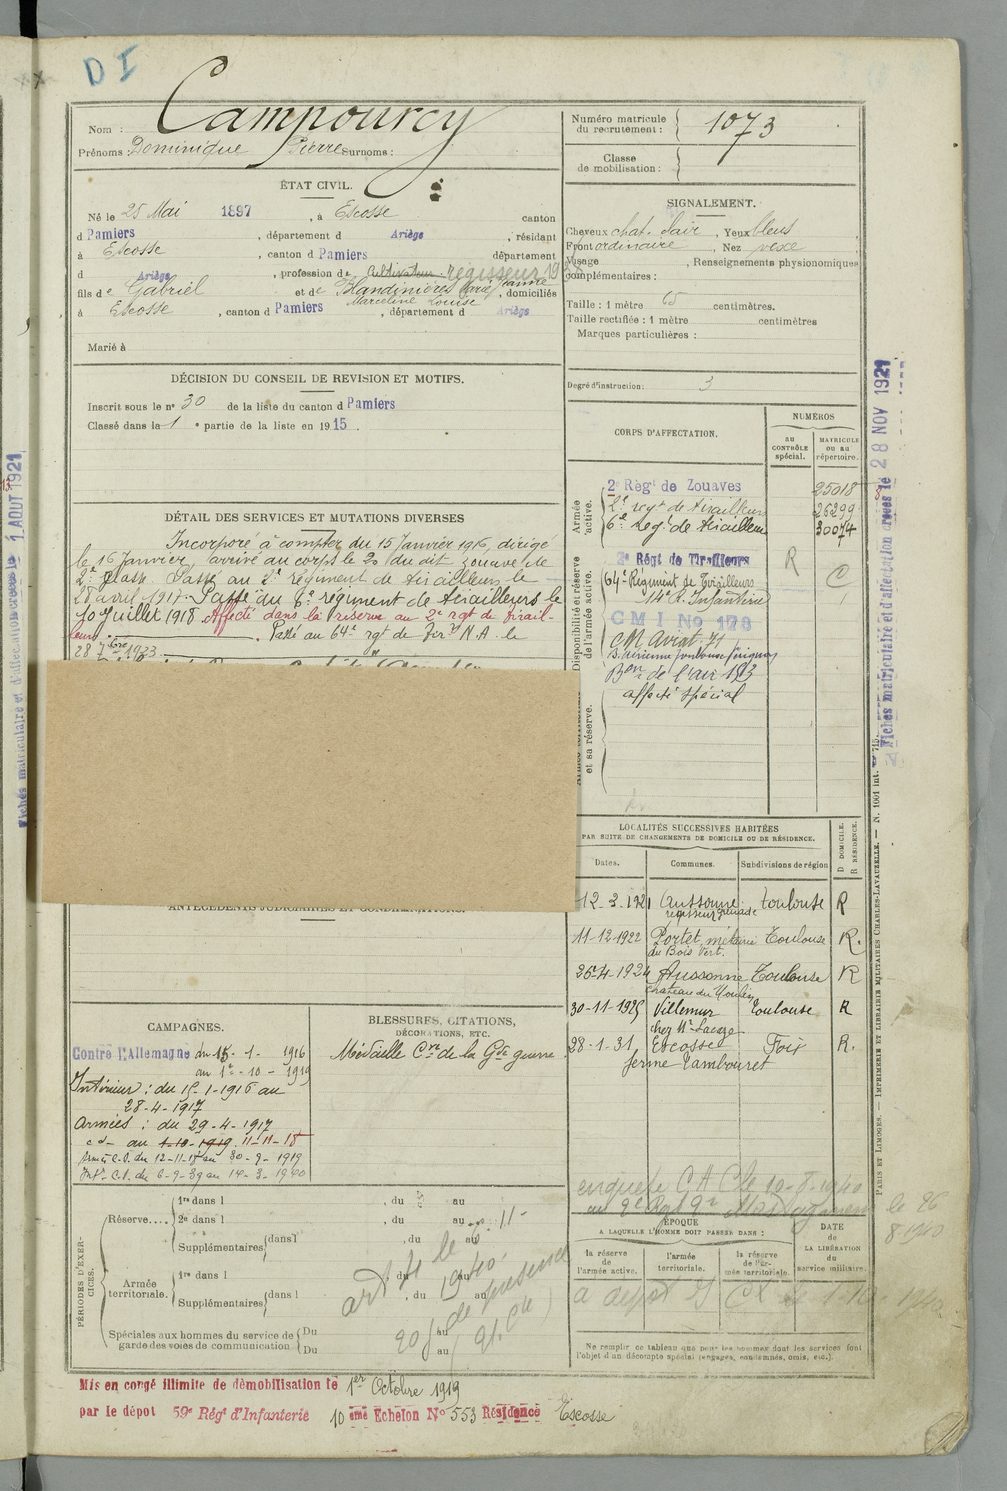 D I
Nom : Campourcy
Prénoms : Dominique Pierre Surnoms :
Numéro matricule du recrutement : 1073
Classe de mobilisation :
ÉTAT CIVIL.
Né le 25 Mai 1897, à Escosse canton
d Pamiers, département d Ariège, résidant
à Escosse, canton d Pamiers département
d Ariège, profession de Cultivateur régisseur
fils de Gabriel et de Blandinières Marie Jeanne
Marceline Louise, domiciliés
à Escosse, canton d Pamiers, département d Ariège
Marié à
SIGNALEMENT.
Cheveux chat. clair, Yeux bleus
Front ordinaire, Nez vexe
Visage, Renseignements physionomiques
complémentaires :
Taille : 1 mètre 65 centimètres.
Taille rectifiée : 1 mètre centimètres
Marques particulières :
Degré d'instruction : 3
DÉCISION DU CONSEIL DE REVISION ET MOTIFS.
Inscrit sous le n° 30 de la liste du canton d Pamiers
Classé dans la 1e partie de la liste en 1915.
DÉTAIL DES SERVICES ET MUTATIONS DIVERSES
Incorporé à compter du 15 Janvier 1916, dirigé
le 16 Janvier, arrivé au corps le 20 du dit zouave de
2e classe. Passé au 2e régiment de tirailleurs le
28 avril 1917. Passé au 6e régiment de tirailleurs le
10 Juillet 1918 Affecté dans la réserve au 2e rgt de tirail-
leurs. Passé au 64e rgt de Tirrs N.A. le
28 7bre 1923
ANTÉCÉDENTS JUDICIAIRES ET CONDAMNATIONS.
CORPS D'AFFECTATION.
NUMÉROS
au CONTRÔLE spécial.
MATRICULE ou au répertoire.
Armée active.
2e Régt de Zouaves 25018
2e regt de tirailleurs 26299
6e Regt de tirailleurs 30074
Disponibilité et réserve de l'armée active.
2e Régt de Tirailleurs R
64e Régiment de Tirailleurs C
14e R. Infanterie
C M I No 178
C.M. Aviat. 71
B. aérienne Toulouse Pérignon
Bon de l'air 193
affecté spécial
et sa réserve.
LOCALITÉS SUCCESSIVES HABITÉES
PAR SUITE DE CHANGEMENTS DE DOMICILE OU DE RÉSIDENCE.
Dates. Communes. Subdivisions de région D DOMICILE. R RÉSIDENCE.
12.3.1921 Aussonne Toulouse R
régisseur Grenade
11-12-1922 Portet, métairie Toulouse R.
du Bois Vert.
26-4-1924 Aussonne Toulouse R
château du Moulin
30-11-1925 Villemur Toulouse R
chez Mr Lacaze
28-1-31 Escosse Foix R.
ferme Tambouret
CAMPAGNES.
Contre l'Allemagne du 15-1-1916
au 1er-10-1919
Intérieur : du 15-1-1916 au
28-4-1917
Armées : du 29-4-1917
cd- au 1-10-1919 11-11-18
Armées C.D. du 12-11-18 au 30-9-1919
Intr C.S. du 6-9-39 au 14-3-1940
BLESSURES, CITATIONS,
DÉCORATIONS, ETC.
Médaille Cve de la Gde guerre
PÉRIODES D'EXERCICES.
Réserve.... 1re dans l, du au
2e dans l, du au
Supplémentaires dans l, du au
Armée territoriale. 1re dans l, du au
Supplémentaires dans l, du au
Spéciales aux hommes du service de garde des voies de communication Du au
Du au
enquête C A C le 10-8-1940
le 26
8 1940
ÉPOQUE
A LAQUELLE L'HOMME DOIT PASSER DANS :
la réserve de l'armée active.
l'armée territoriale.
la réserve de l'armée territoriale.
DATE DE LA LIBÉRATION du service militaire.
Ne remplir ce tableau que pour les hommes dont les services font
l'objet d'un décompte spécial (engagés, condamnés, omis, etc.).
Mis en congé illimité de démobilisation le 1er Octobre 1919
par le dépôt 59e Régt d'Infanterie 10ème Echelon No 553 Résidence Escosse
Fiches matriculaire et d'affectation créées le 1 AOUT 1921
Fiches matriculaire et d'affectation créées le 28 NOV 1921
PARIS ET LIMOGES. — IMPRIMERIE ET LIBRAIRIE MILITAIRES CHARLES-LAVAUZELLE. — N. 1001 int.